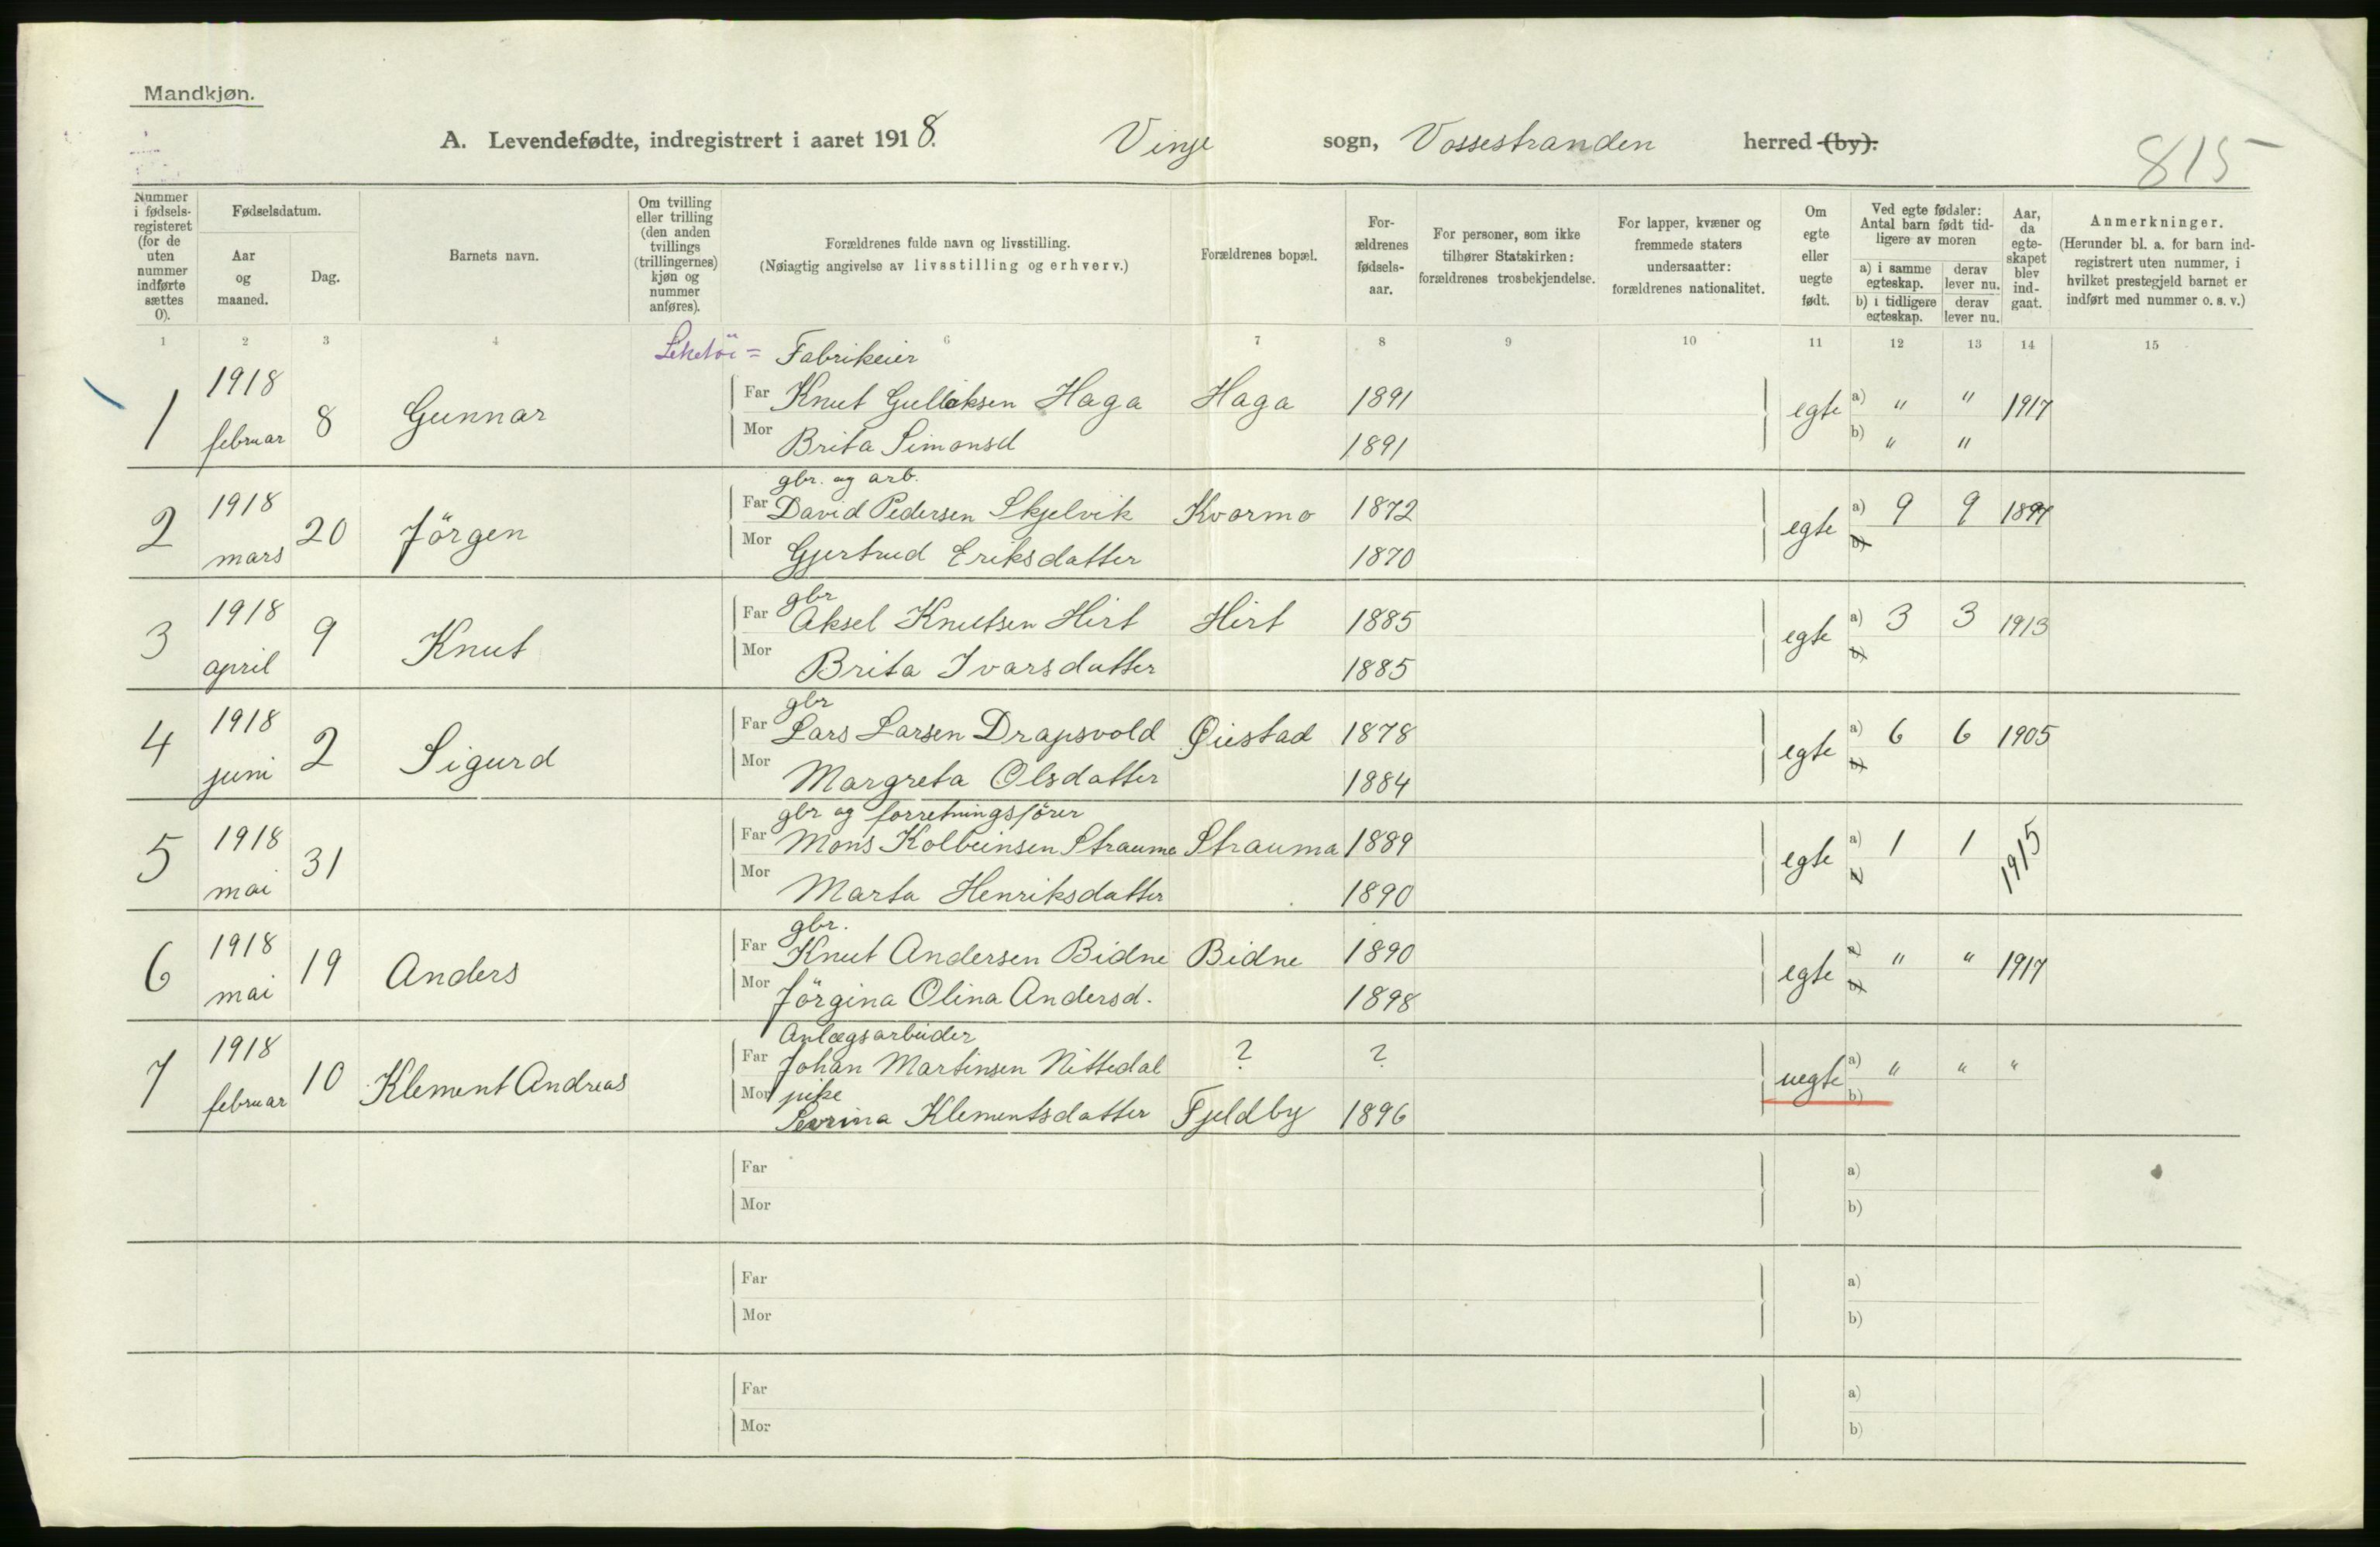 Mandkjøn.
A. Levendefødte, indregistrert i aaret 1918. Vinje sogn, Vossestranden herred (by).
815
Nummer i fødsels-registeret (for de uten nummer indførte sættes 0).
Fødselsdatum.
Aar og maaned.
Dag.
Barnets navn.
Om tvilling eller trilling (den anden tvillings (trillingernes) kjøn og nummer anføres).
Forældrenes fulde navn og livsstilling.
(Nøiagtig angivelse av livsstilling og erhverv.)
Forældrenes bopæl.
For-ældrenes fødsels-aar.
For personer, som ikke tilhører Statskirken: forældrenes trosbekjendelse.
For lapper, kvæner og fremmede staters undersaatter: forældrenes nationalitet.
Om egte eller uegte født.
Ved egte fødsler: Antal barn født tid-ligere av moren
a) i samme egteskap. derav lever nu.
b) i tidligere egteskap. derav lever nu.
Aar, da egte-skapet blev ind-gaat.
Anmerkninger.
(Herunder bl. a. for barn ind-registrert uten nummer, i hvilket prestegjeld barnet er indført med nummer o. s. v.)
1 2 3 4 6 7 8 9 10 11 12 13 14 15
Leketöi = Fabrikeier
1 1918 februar 8 Gunnar Far Knut Gulleksen Haga Haga 1891 egte a) " " 1917
Mor Brita Simonsd 1891 b) " "
gbr. og arb.
2 1918 mars 20 Jörgen Far David Pedersen Skjelvik Kvarmo 1872 egte a) 9 9 1897
Mor Gjertrud Eriksdatter 1870 b)
gbr
3 1918 april 9 Knut Far Aksel Knutsen Hirt Hirt 1885 egte a) 3 3 1913
Mor Brita Ivarsdatter 1885 b)
gbr
4 1918 juni 2 Sigurd Far Lars Larsen Drapsvold Øiestad 1878 egte a) 6 6 1905
Mor Margreta Olsdatter 1884 b)
gbr og forretningsförer
5 1918 mai 31 Far Mons Kolbeinsen Strauma Strauma 1889 egte a) 1 1 1915
Mor Marta Henriksdatter 1890 b)
gbr.
6 1918 mai 19 Anders Far Knut Andersen Bidne Bidne 1890 egte a) " " 1917
Mor Jörgina Olina Andersd. 1898 b)
Anlægsarbeider
7 1918 februar 10 Klement Andreas Far Johan Martinsen Nittedal ? ? uegte a) " " "
Mor pike
Severina Klementsdatter Fjeldby 1896 b)
Far a)
Mor b)
Far a)
Mor b)
Far a)
Mor b)